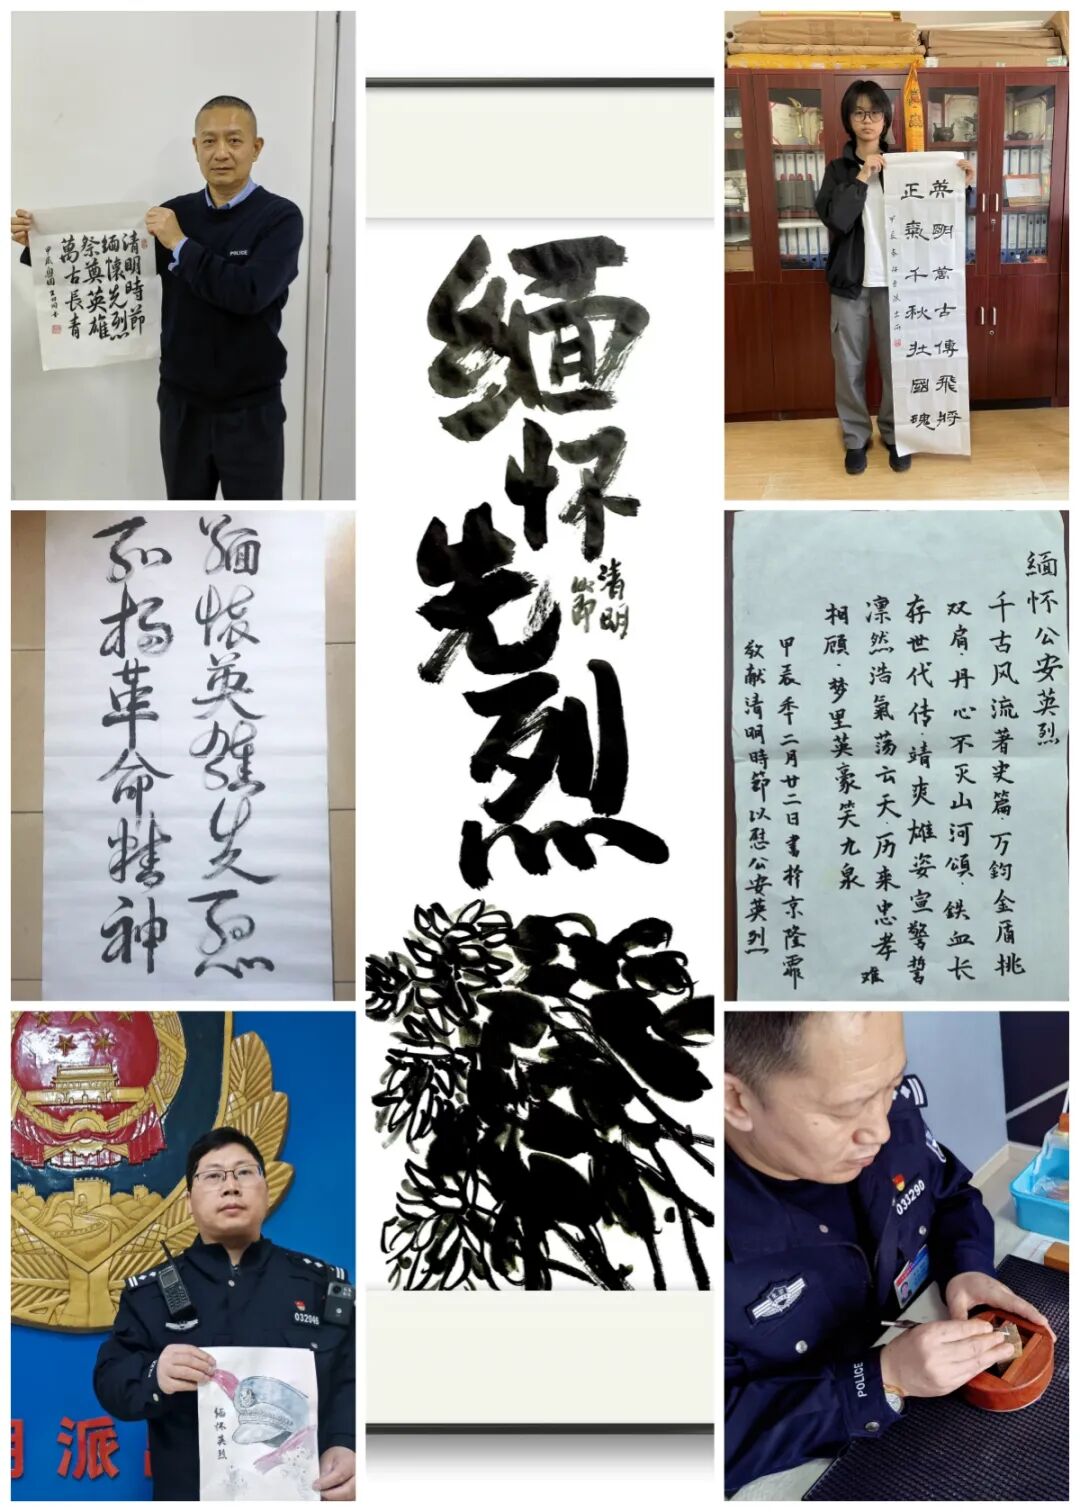 清明時節
緬懷先烈
祭奠英雄
萬古長青
POLICE
缅怀先烈
清明
節
英明萬古傳飛將
正氣千秋壮國魂
甲辰春
缅怀英雄先烈
弘扬革命精神
缅怀公安英烈
千古风流著史篇·万鈞金盾挑
双肩·丹心不灭山河頌·鉄血长
存世代传·靖爽雄姿宣警誓
凛然浩氣荡云天·历来忠孝难
相顾·梦里英豪笑九泉
甲辰年二月廿二日書於京隆霏
敬献清明時節以慰公安英烈
032046
POLICE
缅怀英烈
派
033290
POLICE